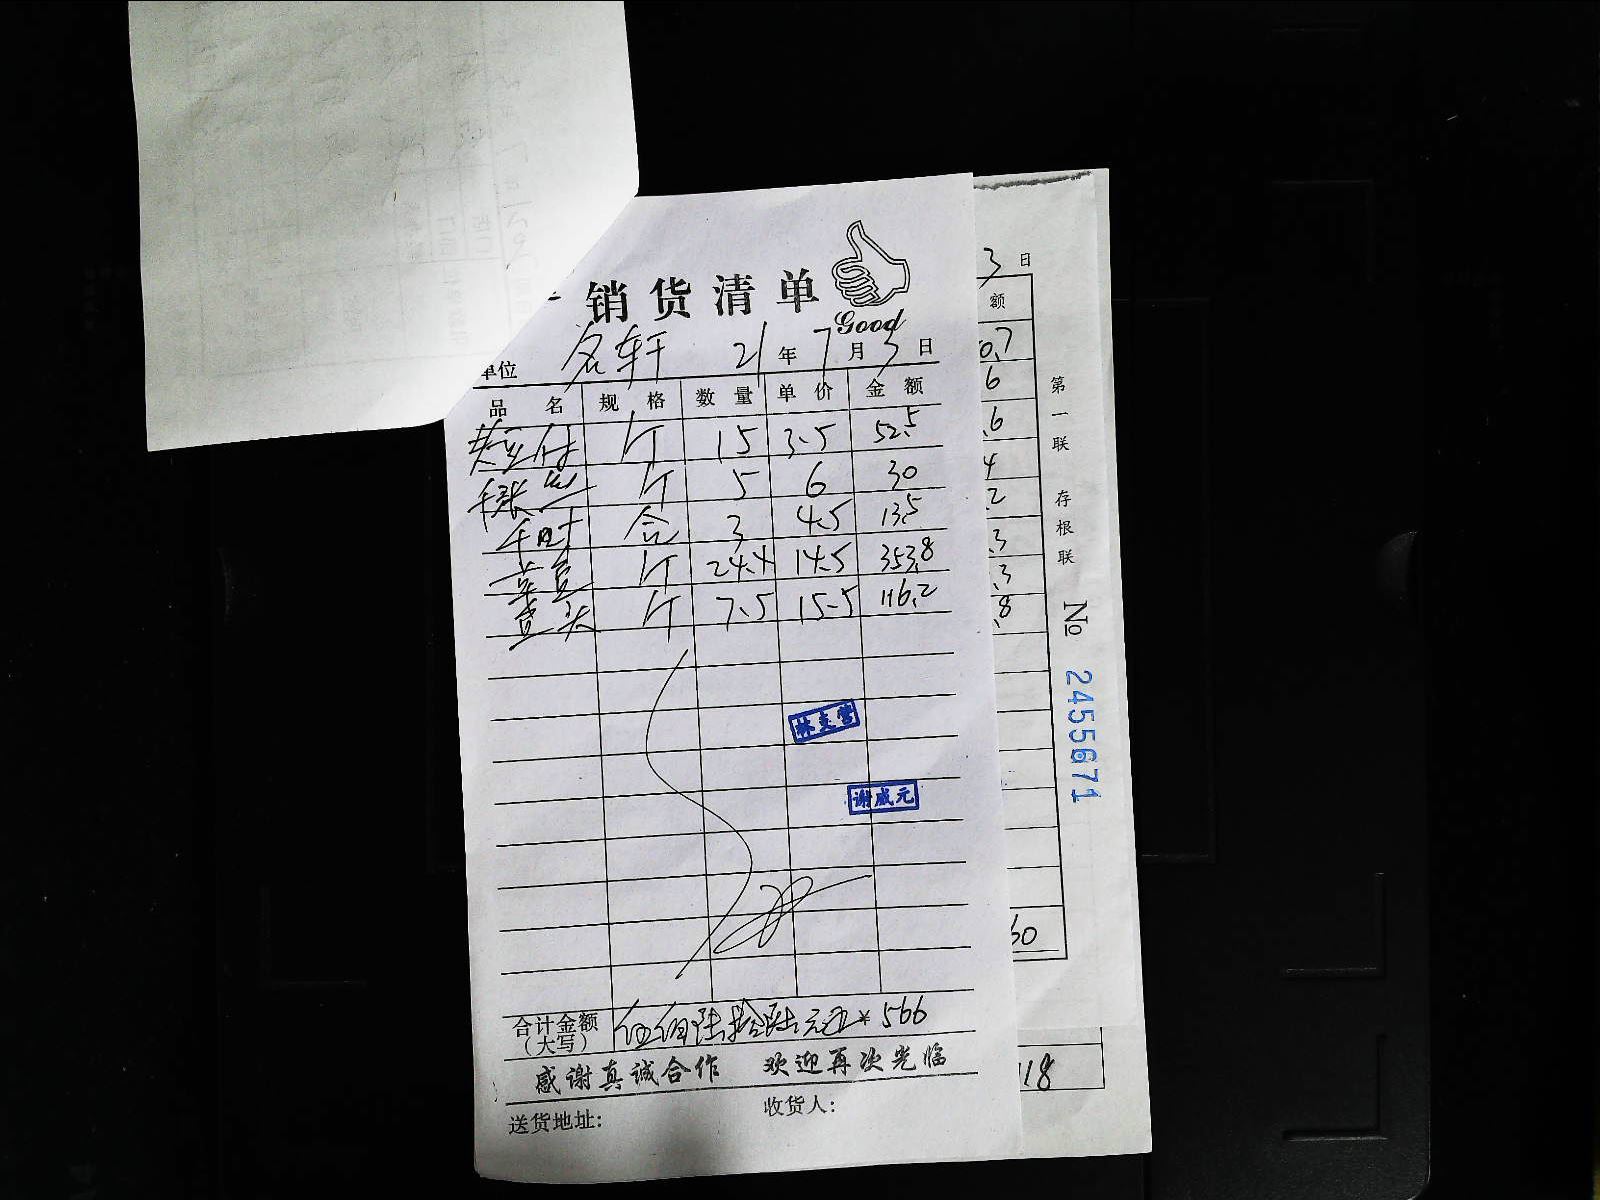 销货清单
Good
单位 名轩 21年7月3日
品名 规格 数量 单价 金额
斤 15 3.5 52.5
斤 5 6 30
合 3 4.5 13.5
斤 24.4 14.5 353.8
斤 7.5 15.5 116.2
谢成元
合计金额(大写) 伍佰陆拾陆元正 ¥566
感谢真诚合作 欢迎再次光临
送货地址: 收货人:
3日
额
0.7
6
.6
4
.2
.3
.3
.8
60
118
第一联 存根联
No 2455671